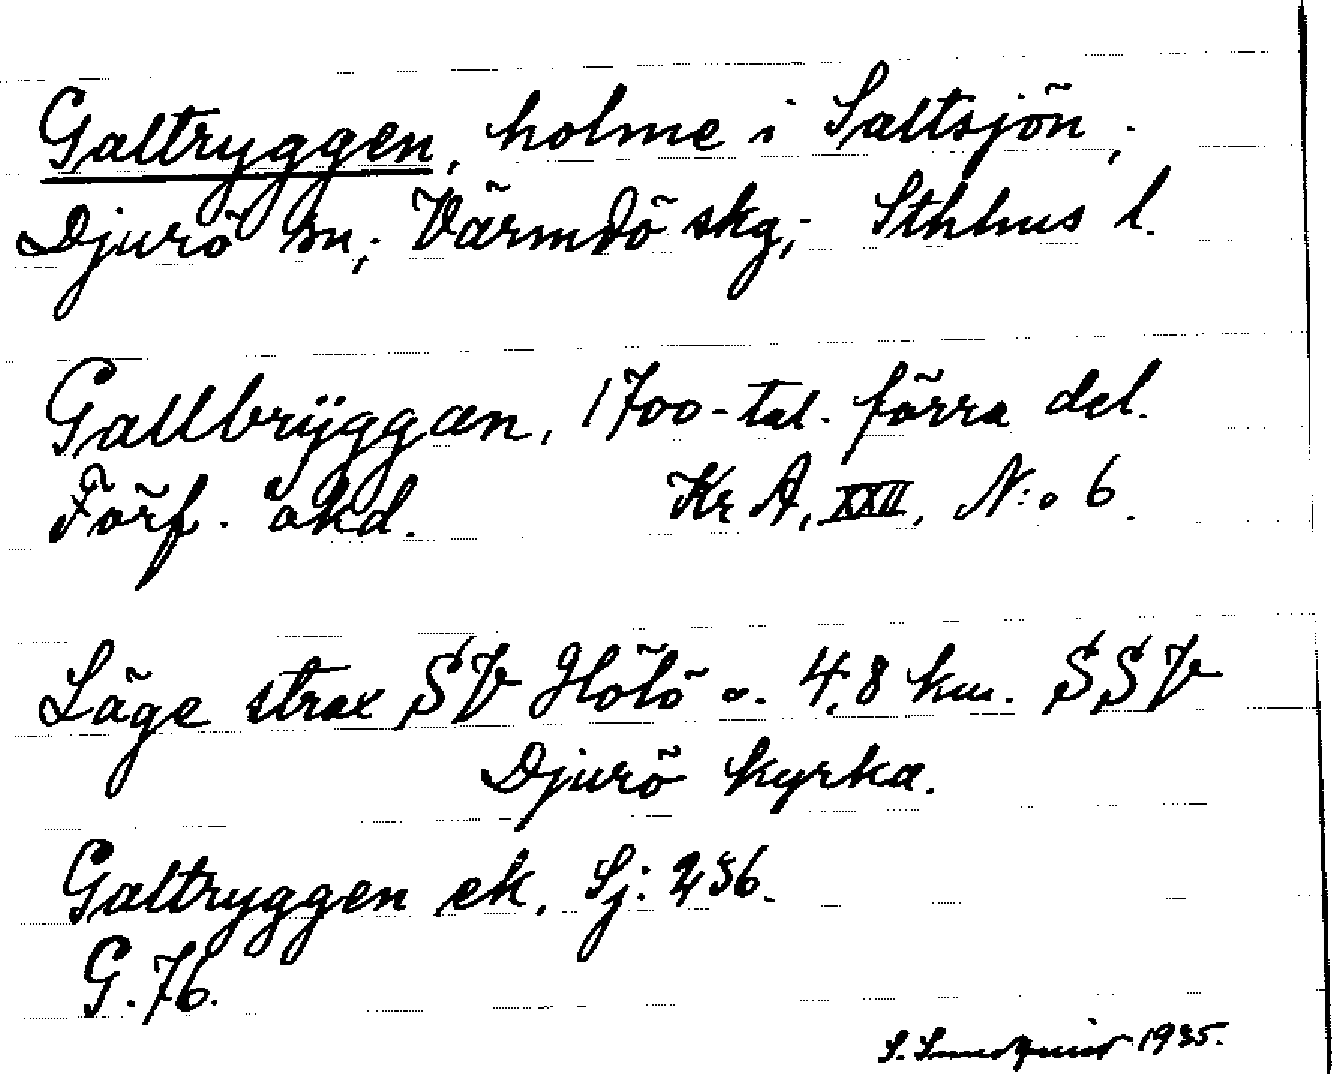 Galtryggen, holme i Saltsjön,;
Djurö sn,; Värmdö skg,; Sthlms l.
Gallbrÿggan, 1700-tal. förra del.
Förf. okd. Kr A, XXII, N:o 6.
Läge strax SV Hölö o. 4,8 km. SSV
Djurö kyrka.
Galtryggen ek. Sj: 236.
G. 76.
S. Sundquist 1935.